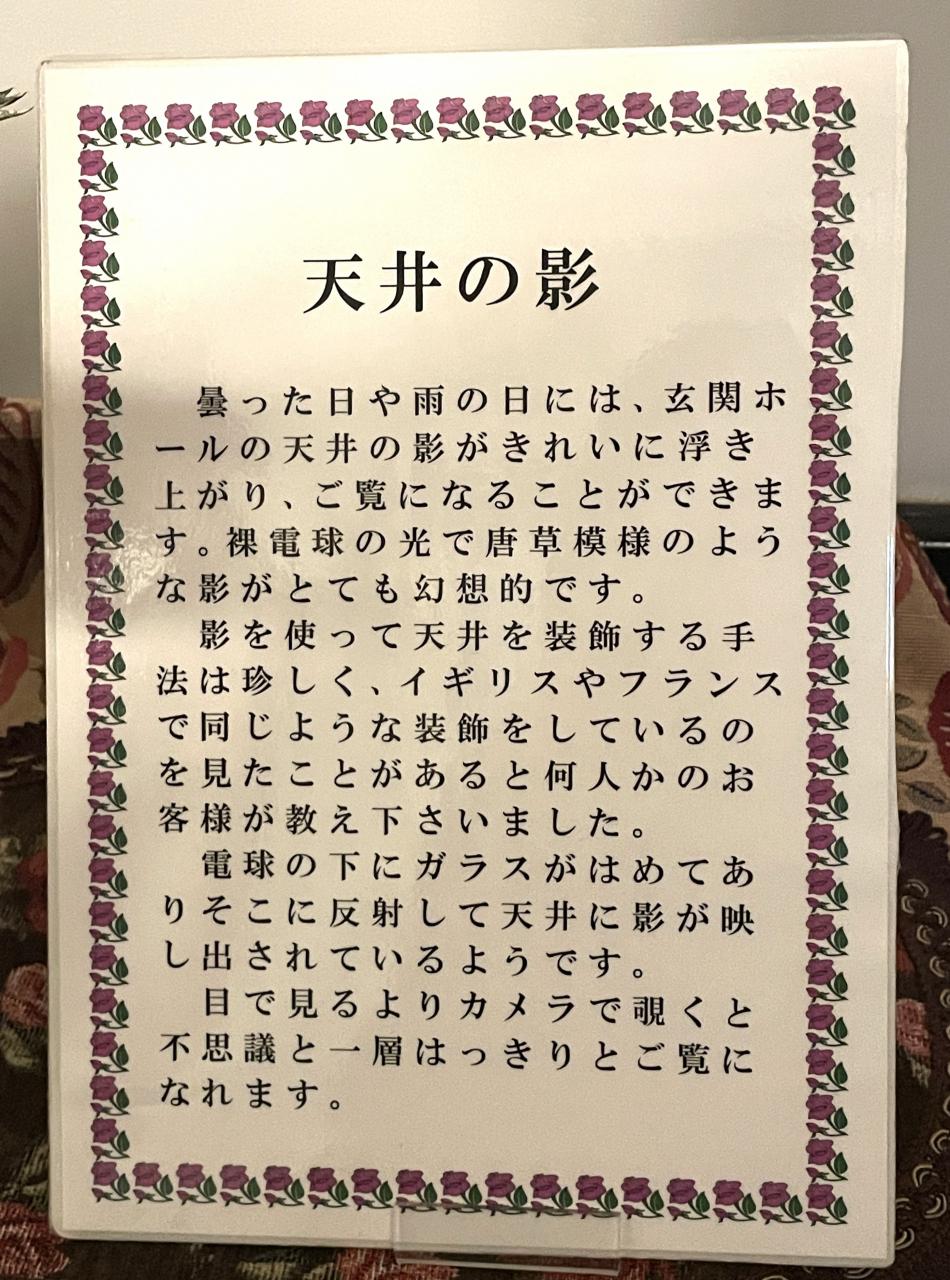 天井の影
曇った日や雨の日には、玄関ホ
ールの天井の影がきれいに浮き
上がり、ご覧になることができま
す。裸電球の光で唐草模様のよう
な影がとても幻想的です。
影を使って天井を装飾する手
法は珍しく、イギリスやフランス
で同じような装飾をしているの
を見たことがあると何人かのお
客様が教え下さいました。
電球の下にガラスがはめてあ
りそこに反射して天井に影が映
し出されているようです。
目で見るよりカメラで覗くと
不思議と一層はっきりとご覧に
なれます。